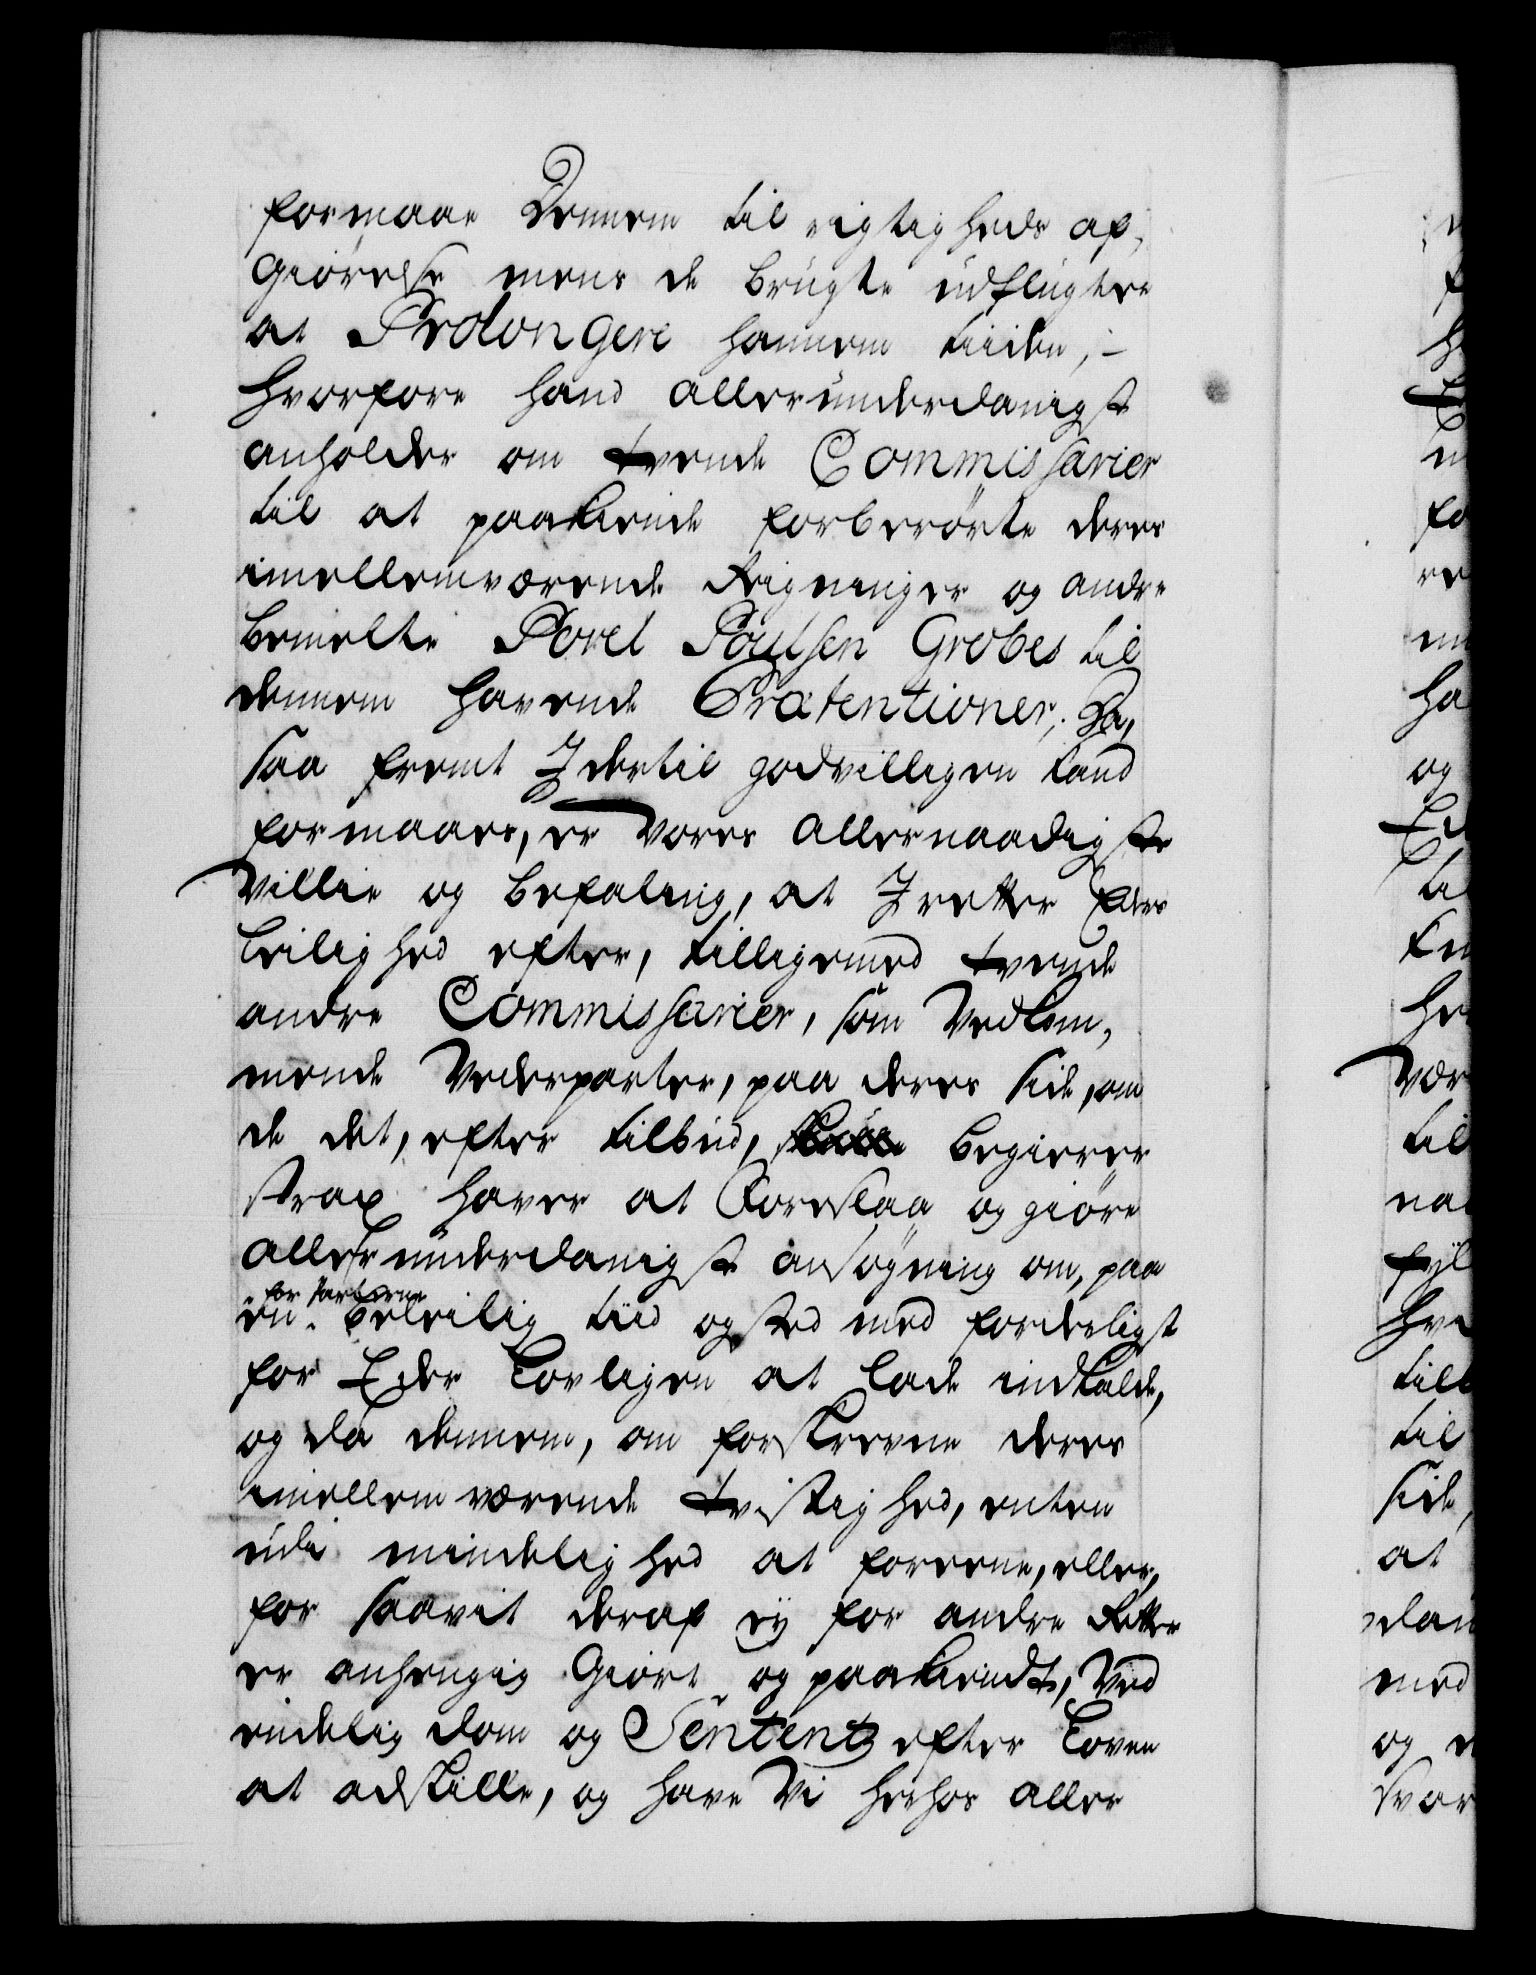 formaae Dennem til rigtigheds af,
giørelse mens de brugte udflugter
at Prolongere hannem tiiden, -
hvorfore hand allerunderdanigst
anholder om tvende Commissarier
til at paakiende forberørte deres
imellemværende Reigninger og andre
bemelte Povel Poulsen Grobes til
dennem havende Prætentioner; Da,
saa fremt I dertil godvilligen kand
formaaes, er Vores allernaadigste
Villie og befaling, at I retter Eders
leilighed efter, tilligemed tvende
andre Commissarier, som Vedkom,
mende Vederparter, paa deres side, om
de det, efter tilbud, begierer
strax haver at Foreslaa og giøre
allerunderdanigst ansøgning om, paa
for Parterne
en beleilig tiid og sted med forderligst
for Eder Lovligen at lade indkalde,
og da dennem, om forskrevne deres
imellemværende tvistighed, enten
udi mindelighed at foreene, eller,
for saavit deraf ey for andre Retter
er anhengig Giort og paakiendt, Ved
endelig dom og Sententz efter Loven
at adskille, og have Vi hosføyet aller